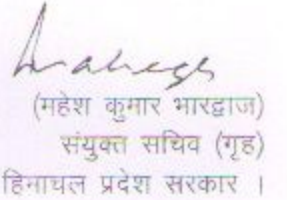 Mahesh
(महेश कुमार भारद्वाज)
संयुक्त सचिव (गृह)
हिमाचल प्रदेश सरकार ।